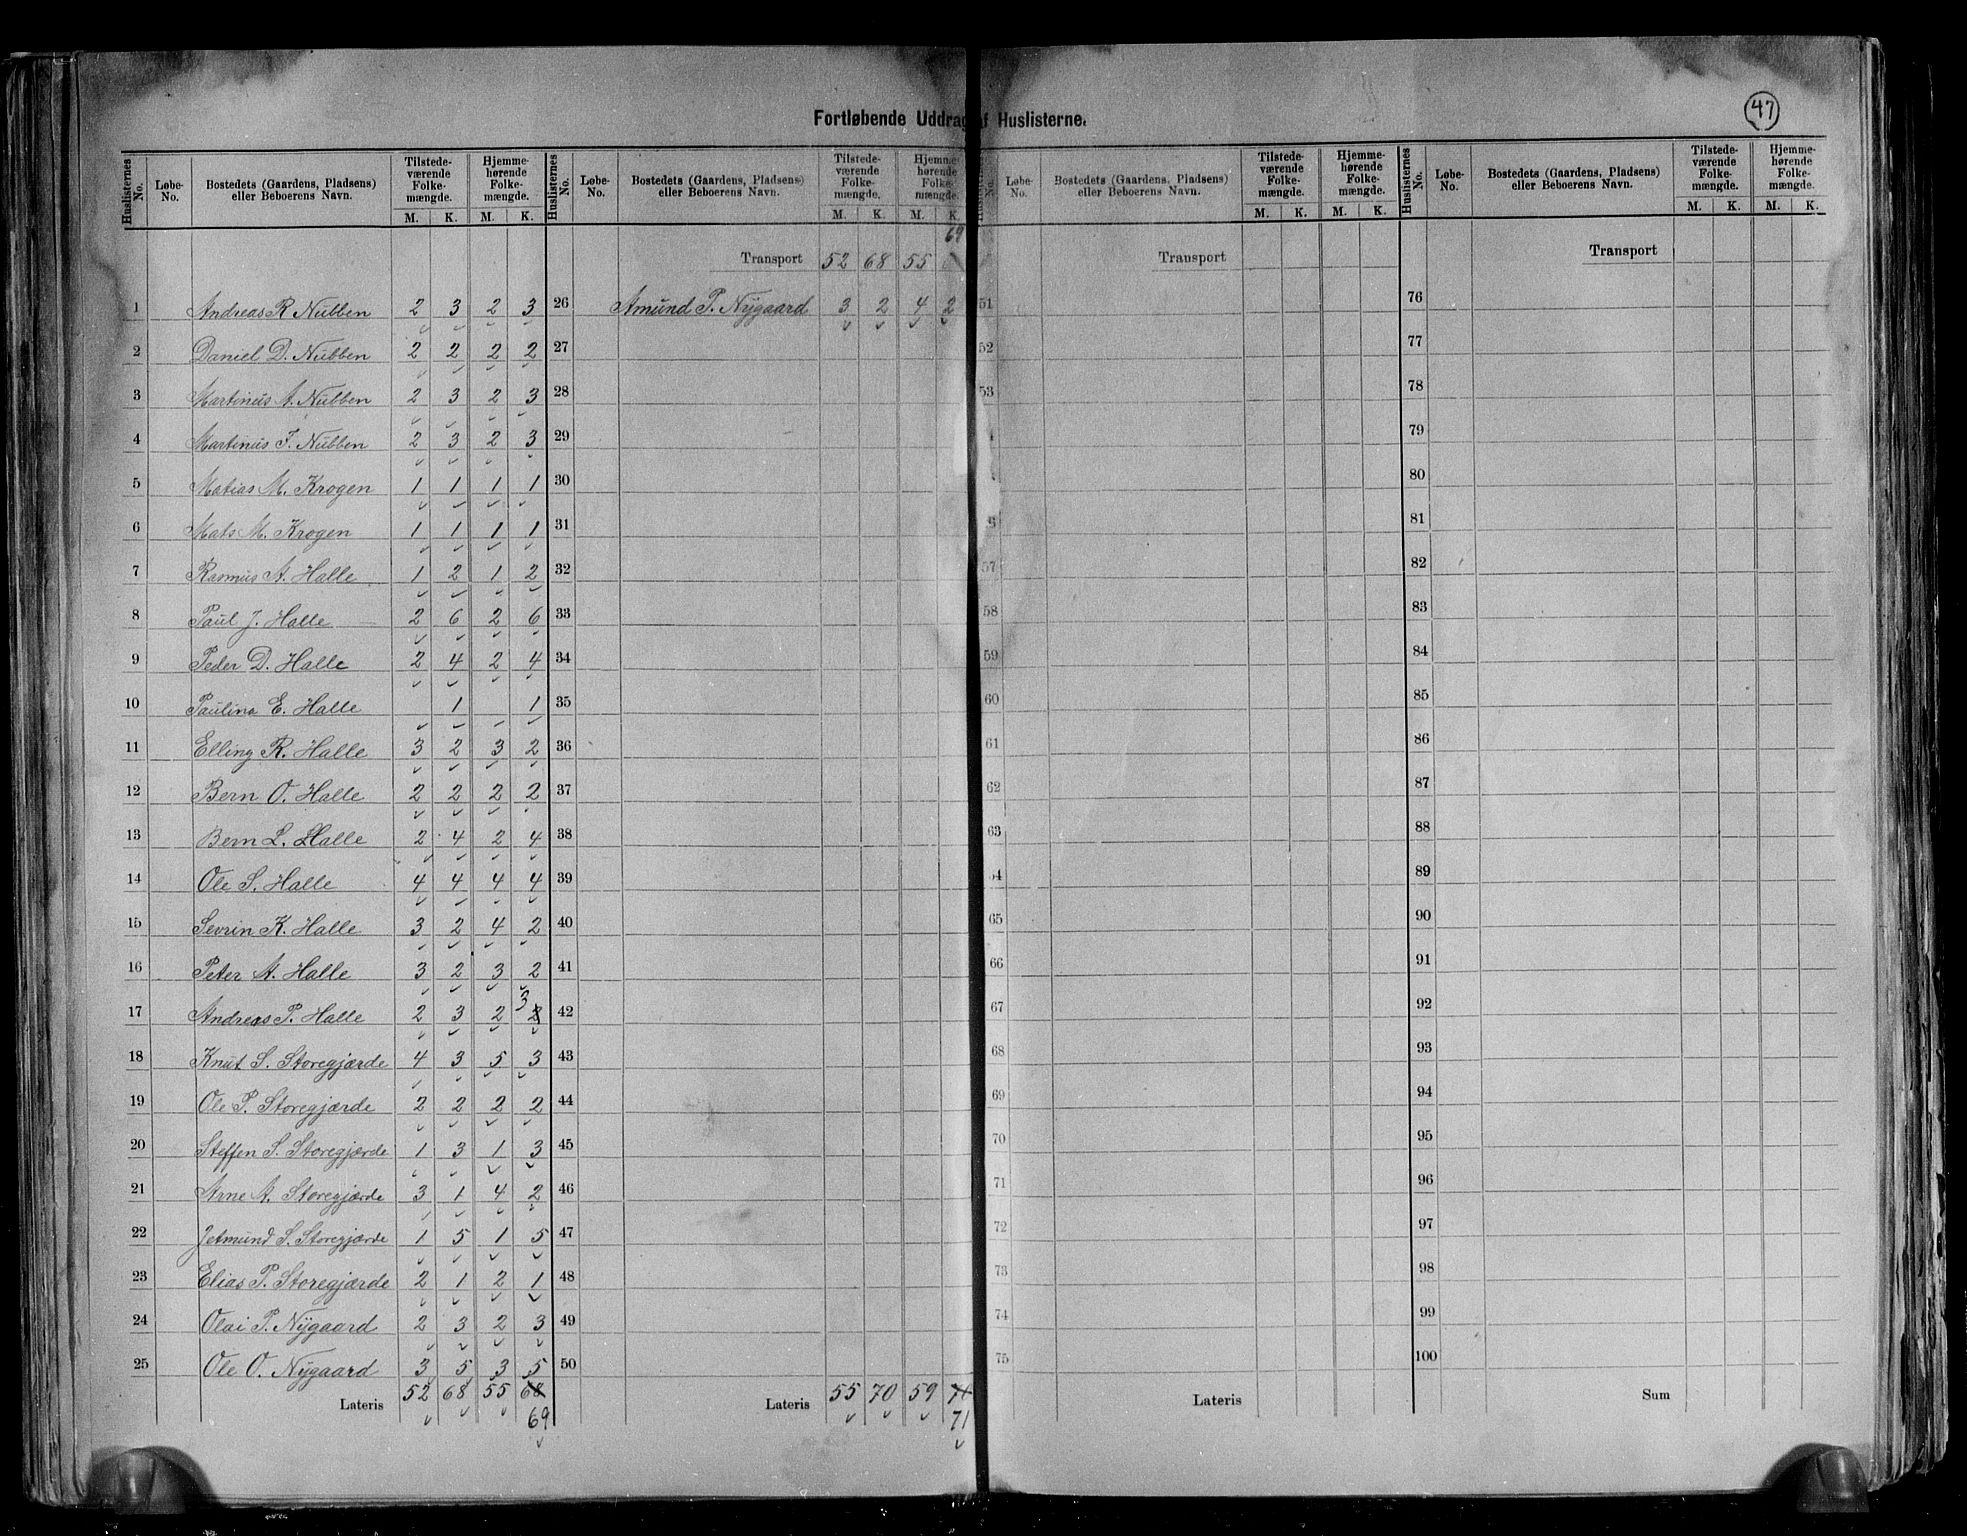 47
Fortløbende Uddrag af Huslisterne.
Huslisternes No. Løbe-No. Bostedets (Gaardens, Pladsens) eller Beboerens Navn. Tilstedeværende Folkemængde. M. K. Hjemmehørende Folkemængde. M. K.
1 Andreas R. Nübben 2 3 2 3
2 Daniel D. Nübben 2 2 2 2
3 Martinüs A. Nübben 2 3 2 3
4 Martinüs F. Nübben 2 3 2 3
5 Matias M. Krogen 1 1 1 1
6 Mats M. Krogen 1 1 1 1
7 Rasmüs A. Halle 1 2 1 2
8 Paül J. Halle 2 6 2 6
9 Peder D. Halle 2 4 2 4
10 Pauline E. Halle 1 1
11 Elling R. Halle 3 2 3 2
12 Bern O. Halle 2 2 2 2
13 Bern L. Halle 2 4 2 4
14 Ole S. Halle 4 4 4 4
15 Sevrin K. Halle 3 2 4 2
16 Peter A. Halle 3 2 3 2
17 Andreas P. Halle 2 3 2 2 3
18 Knut S. Storegjærde 4 3 5 3
19 Ole P. Storegjærde 2 2 2 2
20 Steffen S. Storegjærde 1 3 1 3
21 Arne A. Storegjærde 3 1 4 2
22 Jetmund S. Storegjærde 1 5 1 5
23 Elias P. Storegjærde 2 1 2 1
24 Olai P. Nÿgaard 2 3 2 3
25 Ole O. Nÿgaard 3 5 3 5
Lateris 52 68 55 68
69
Huslisternes No. Løbe-No. Bostedets (Gaardens, Pladsens) eller Beboerens Navn. Tilstedeværende Folkemængde. M. K. Hjemmehørende Folkemængde. M. K.
69
Transport 52 68 55
26 Amünd P. Nÿgaard 3 2 4 2
27
28
29
30
31
32
33
34
35
36
37
38
39
40
41
42
43
44
45
46
47
48
49
50
Lateris 55 70 59 71
71
No. Løbe-No. Bostedets (Gaardens, Pladsens) eller Beboerens Navn. Tilstedeværende Folkemængde. M. K. Hjemmehørende Folkemængde. M. K.
Transport
51
52
53
57
58
59
60
61
62
63
65
66
67
68
69
70
71
72
73
74
75
Lateris
Huslisternes No. Løbe-No. Bostedets (Gaardens, Pladsens) eller Beboerens Navn. Tilstedeværende Folkemængde. M. K. Hjemmehørende Folkemængde. M. K.
Transport
76
77
78
79
80
81
82
83
84
85
86
87
88
89
90
91
92
93
94
95
96
97
98
99
100
Sum